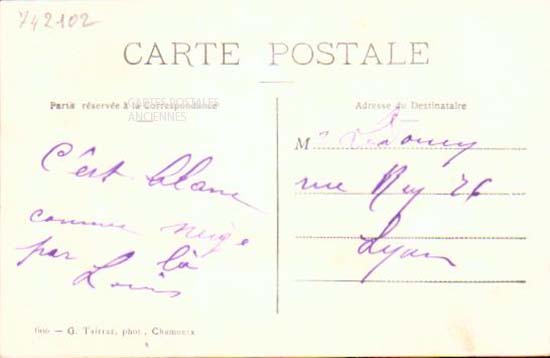 742102
CARTE POSTALE
Partie réservée à la Correspondance
CARTES POSTALES
ANCIENNES
C'est blanc
comme neige
par là
Louis
Adresse du Destinataire
M
rue Rey 26
Lyon
600 — G. Tairraz, phot., Chamonix